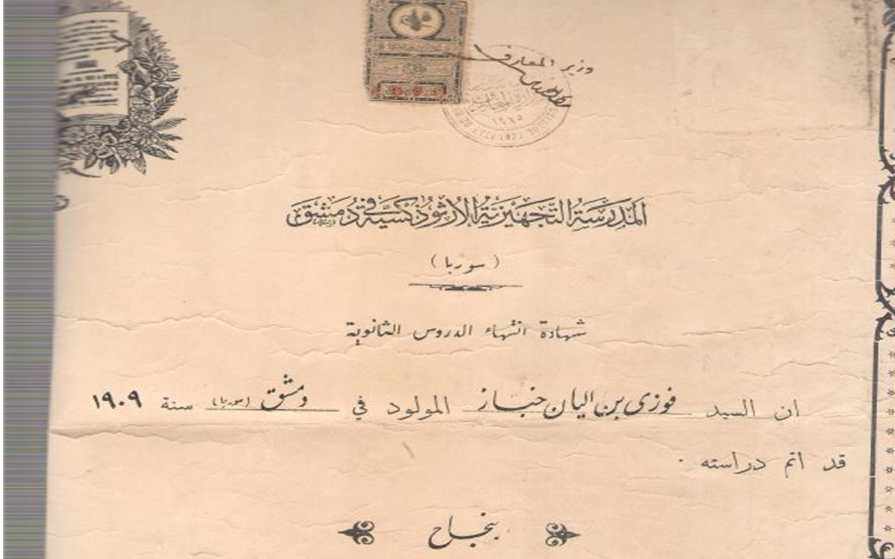 وزير المعارف
المدرسة التجهيزية الارثوذكسية في دمشق
(سوريا)
شهادة انتهاء الدروس الثانوية
ان السيد فوزي بن اليان خباز المولود في دمشق (سوريا) سنة ١٩٠٩
قد اتم دراسته .
بنجاح